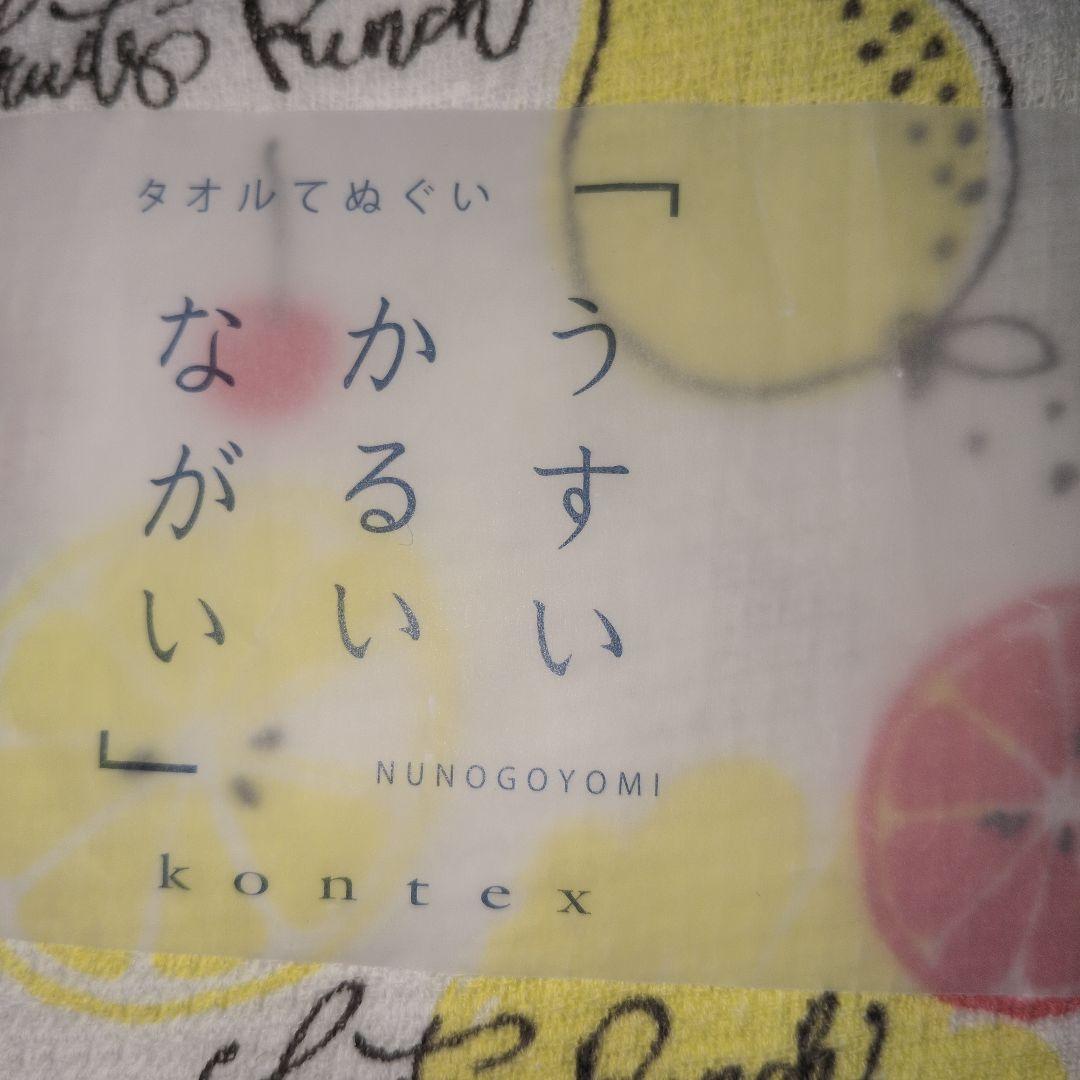 Punch
タオルてぬぐい
「うすい
かるい
ながい」
NUNOGOYOMI
kontex
Punch